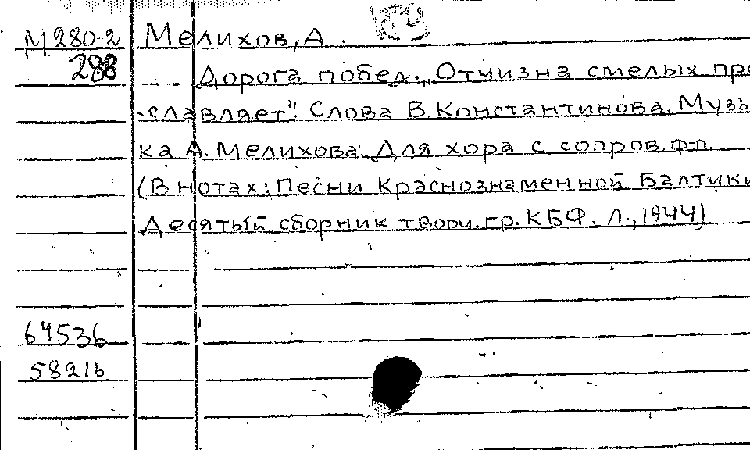 М280-2 Мелихов, А.
288 Дорога побед. „Отчизна смелых про
славляет". Слова В. Константинова. Музы
ка А. Мелихова. Для хора с сопров. ф-п.
(В нотах: Песни Краснознаменной Балтики
Десятый сборник творч. гр. КБФ. Л., 1944)
64536
58216